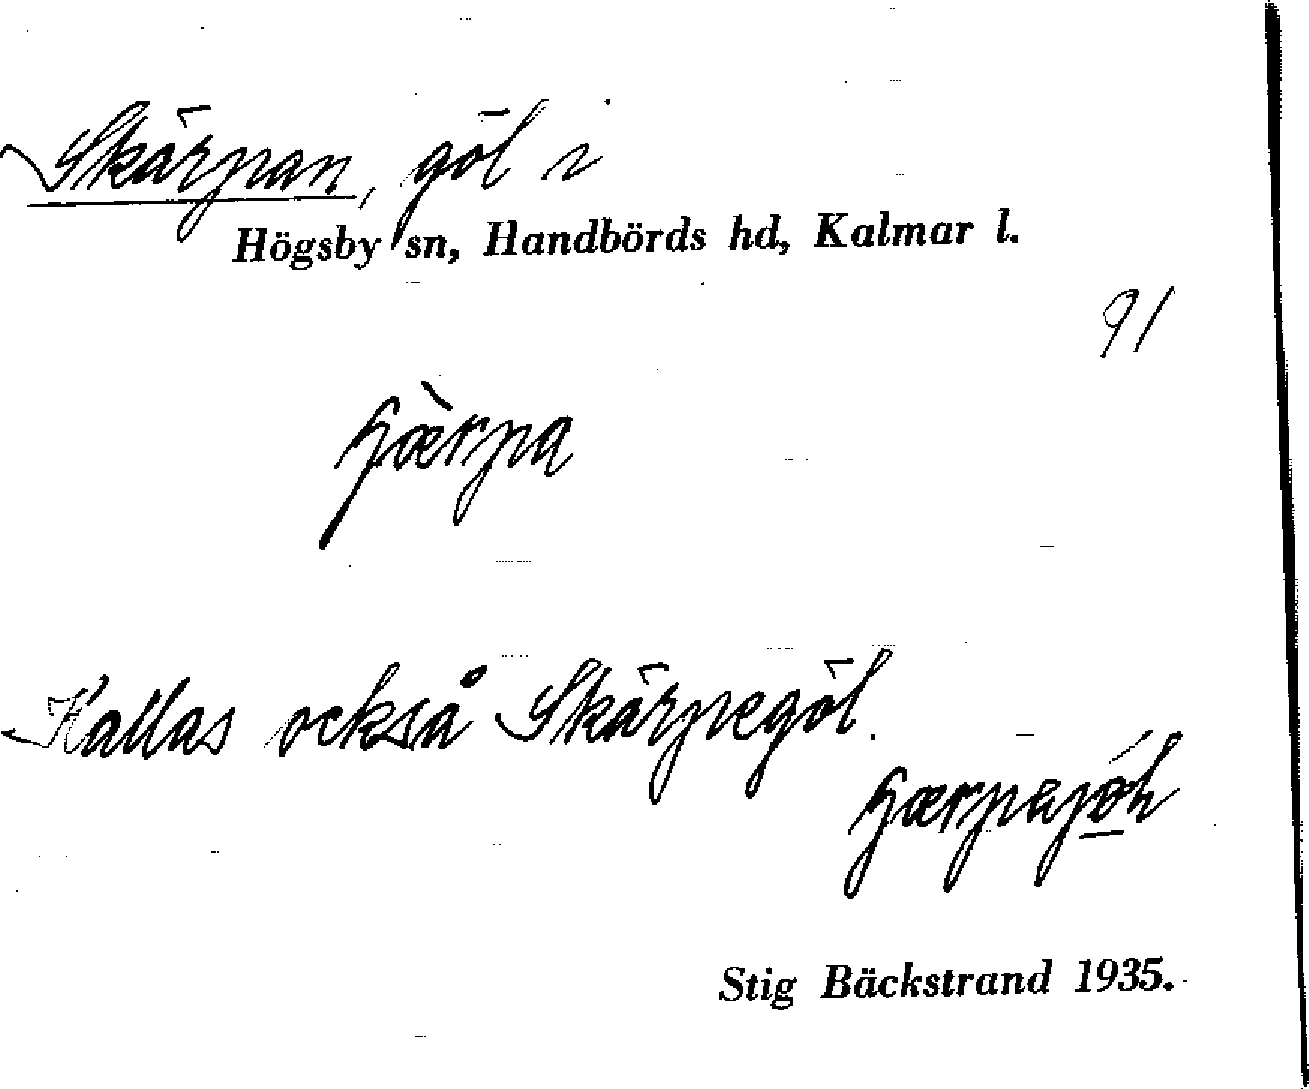 Skärpan, göl i
Högsby sn, Handbörds hd, Kalmar l.
91
ɧæ̀rpa
Kallas också Skärpegöl.
Stig Bäckstrand 1935.